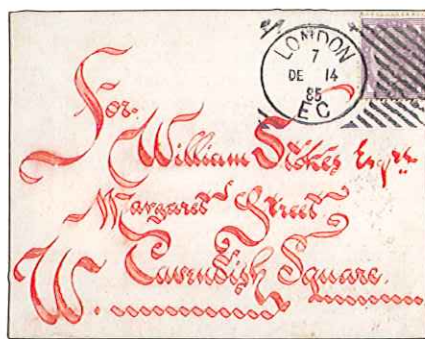 LONDON
7
DE 14
85
EC
For.
William Stokes Esqre.
Margaret Street
Cavendish Square.
W.